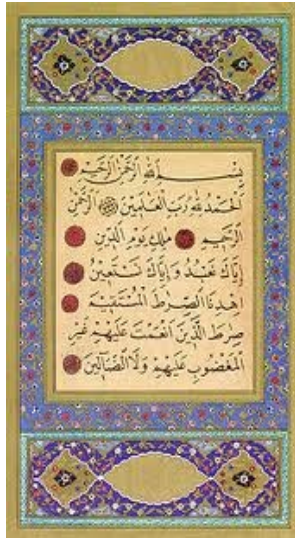 بِسْمِ اللهِ الرَّحْمٰنِ الرَّحِيمِ
اَلْحَمْدُ لِلهِ رَبِّ الْعَالَمِينَ الرَّحْمٰنِ
الرَّحِيمِ مٰلِكِ يَوْمِ الدِّينِ
اِيَّاكَ نَعْبُدُ وَاِيَّاكَ نَسْتَعِينُ
اِهْدِنَا الصِّرَاطَ الْمُسْتَقِيمَ
صِرَاطَ الَّذِينَ اَنْعَمْتَ عَلَيْهِمْ غَيْرِ
الْمَغْضُوبِ عَلَيْهِمْ وَلَا الضَّالِّينَ